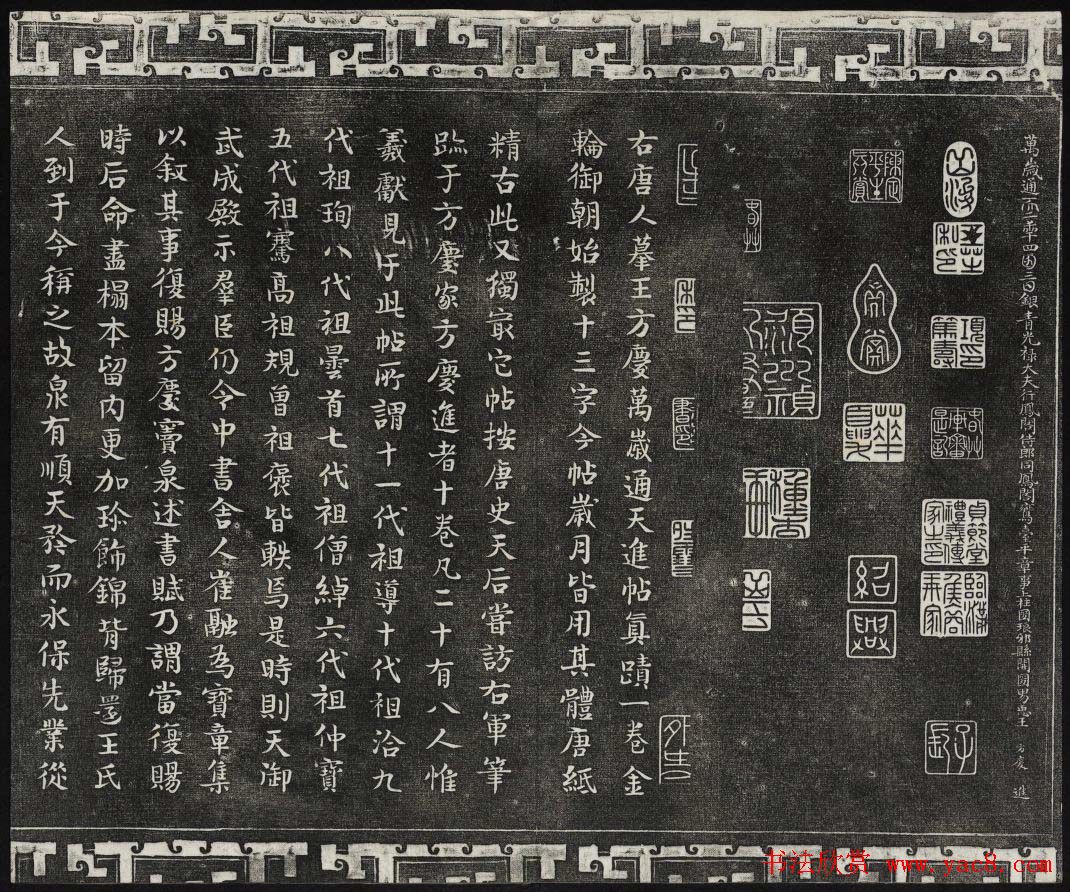 萬歲通𠀑二𠡦四𠥱三日銀青光祿大夫行鳳閣侍郎同鳳閣鸞臺平章事上柱國琅邪縣開國男𢘑王方慶進
華夏
紹興
右唐人摹王方慶萬歲通天進帖真蹟一卷金
輪御朝始製十三字今帖歲月皆用其體唐紙
精古此又獨冣它帖按唐史天后嘗訪右軍筆
跡于方慶家方慶進者十卷凡二十有八人惟
羲獻見于此帖所謂十一代祖導十代祖洽九
代祖珣八代祖曇首七代祖僧綽六代祖仲寶
五代祖騫高祖規曾祖褒皆軼焉是時則天御
武成殿示羣臣仍令中書舍人崔融為寶章集
以敘其事復賜方慶竇泉述書賦乃謂當復賜
時后命盡榻本留內更加珍飾錦背歸還王氏
人到于今稱之故泉有順天矜而永保先業從
书法欣赏 www.yac8.com